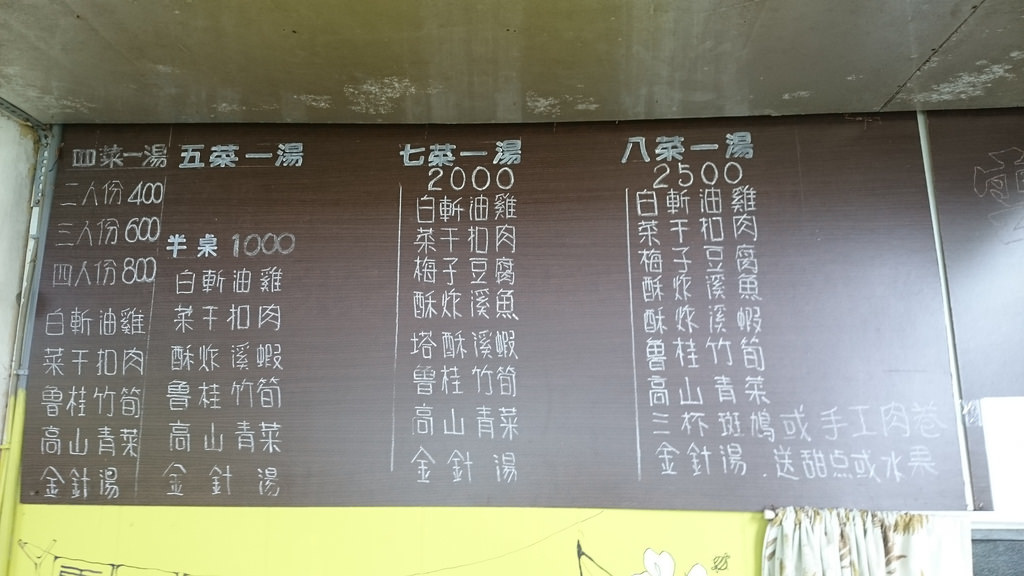 四菜一湯
二人份 400
三人份 600
四人份 800
白斬油雞
菜干扣肉
魯桂竹筍
高山青菜
金針湯
五菜一湯
半桌 1000
白斬油雞
菜干扣肉
酥炸溪蝦
魯桂竹筍
高山青菜
金針湯
七菜一湯
2000
白斬油雞
菜干扣肉
梅子豆腐
酥炸溪魚
塔酥溪蝦
魯桂竹筍
高山青菜
金針湯
八菜一湯
2500
白斬油雞
菜干扣肉
梅子豆腐
酥炸溪魚
酥炸溪蝦
魯桂竹筍
高山青菜
三杯斑鳩或手工肉卷
金針湯.送甜点或水果